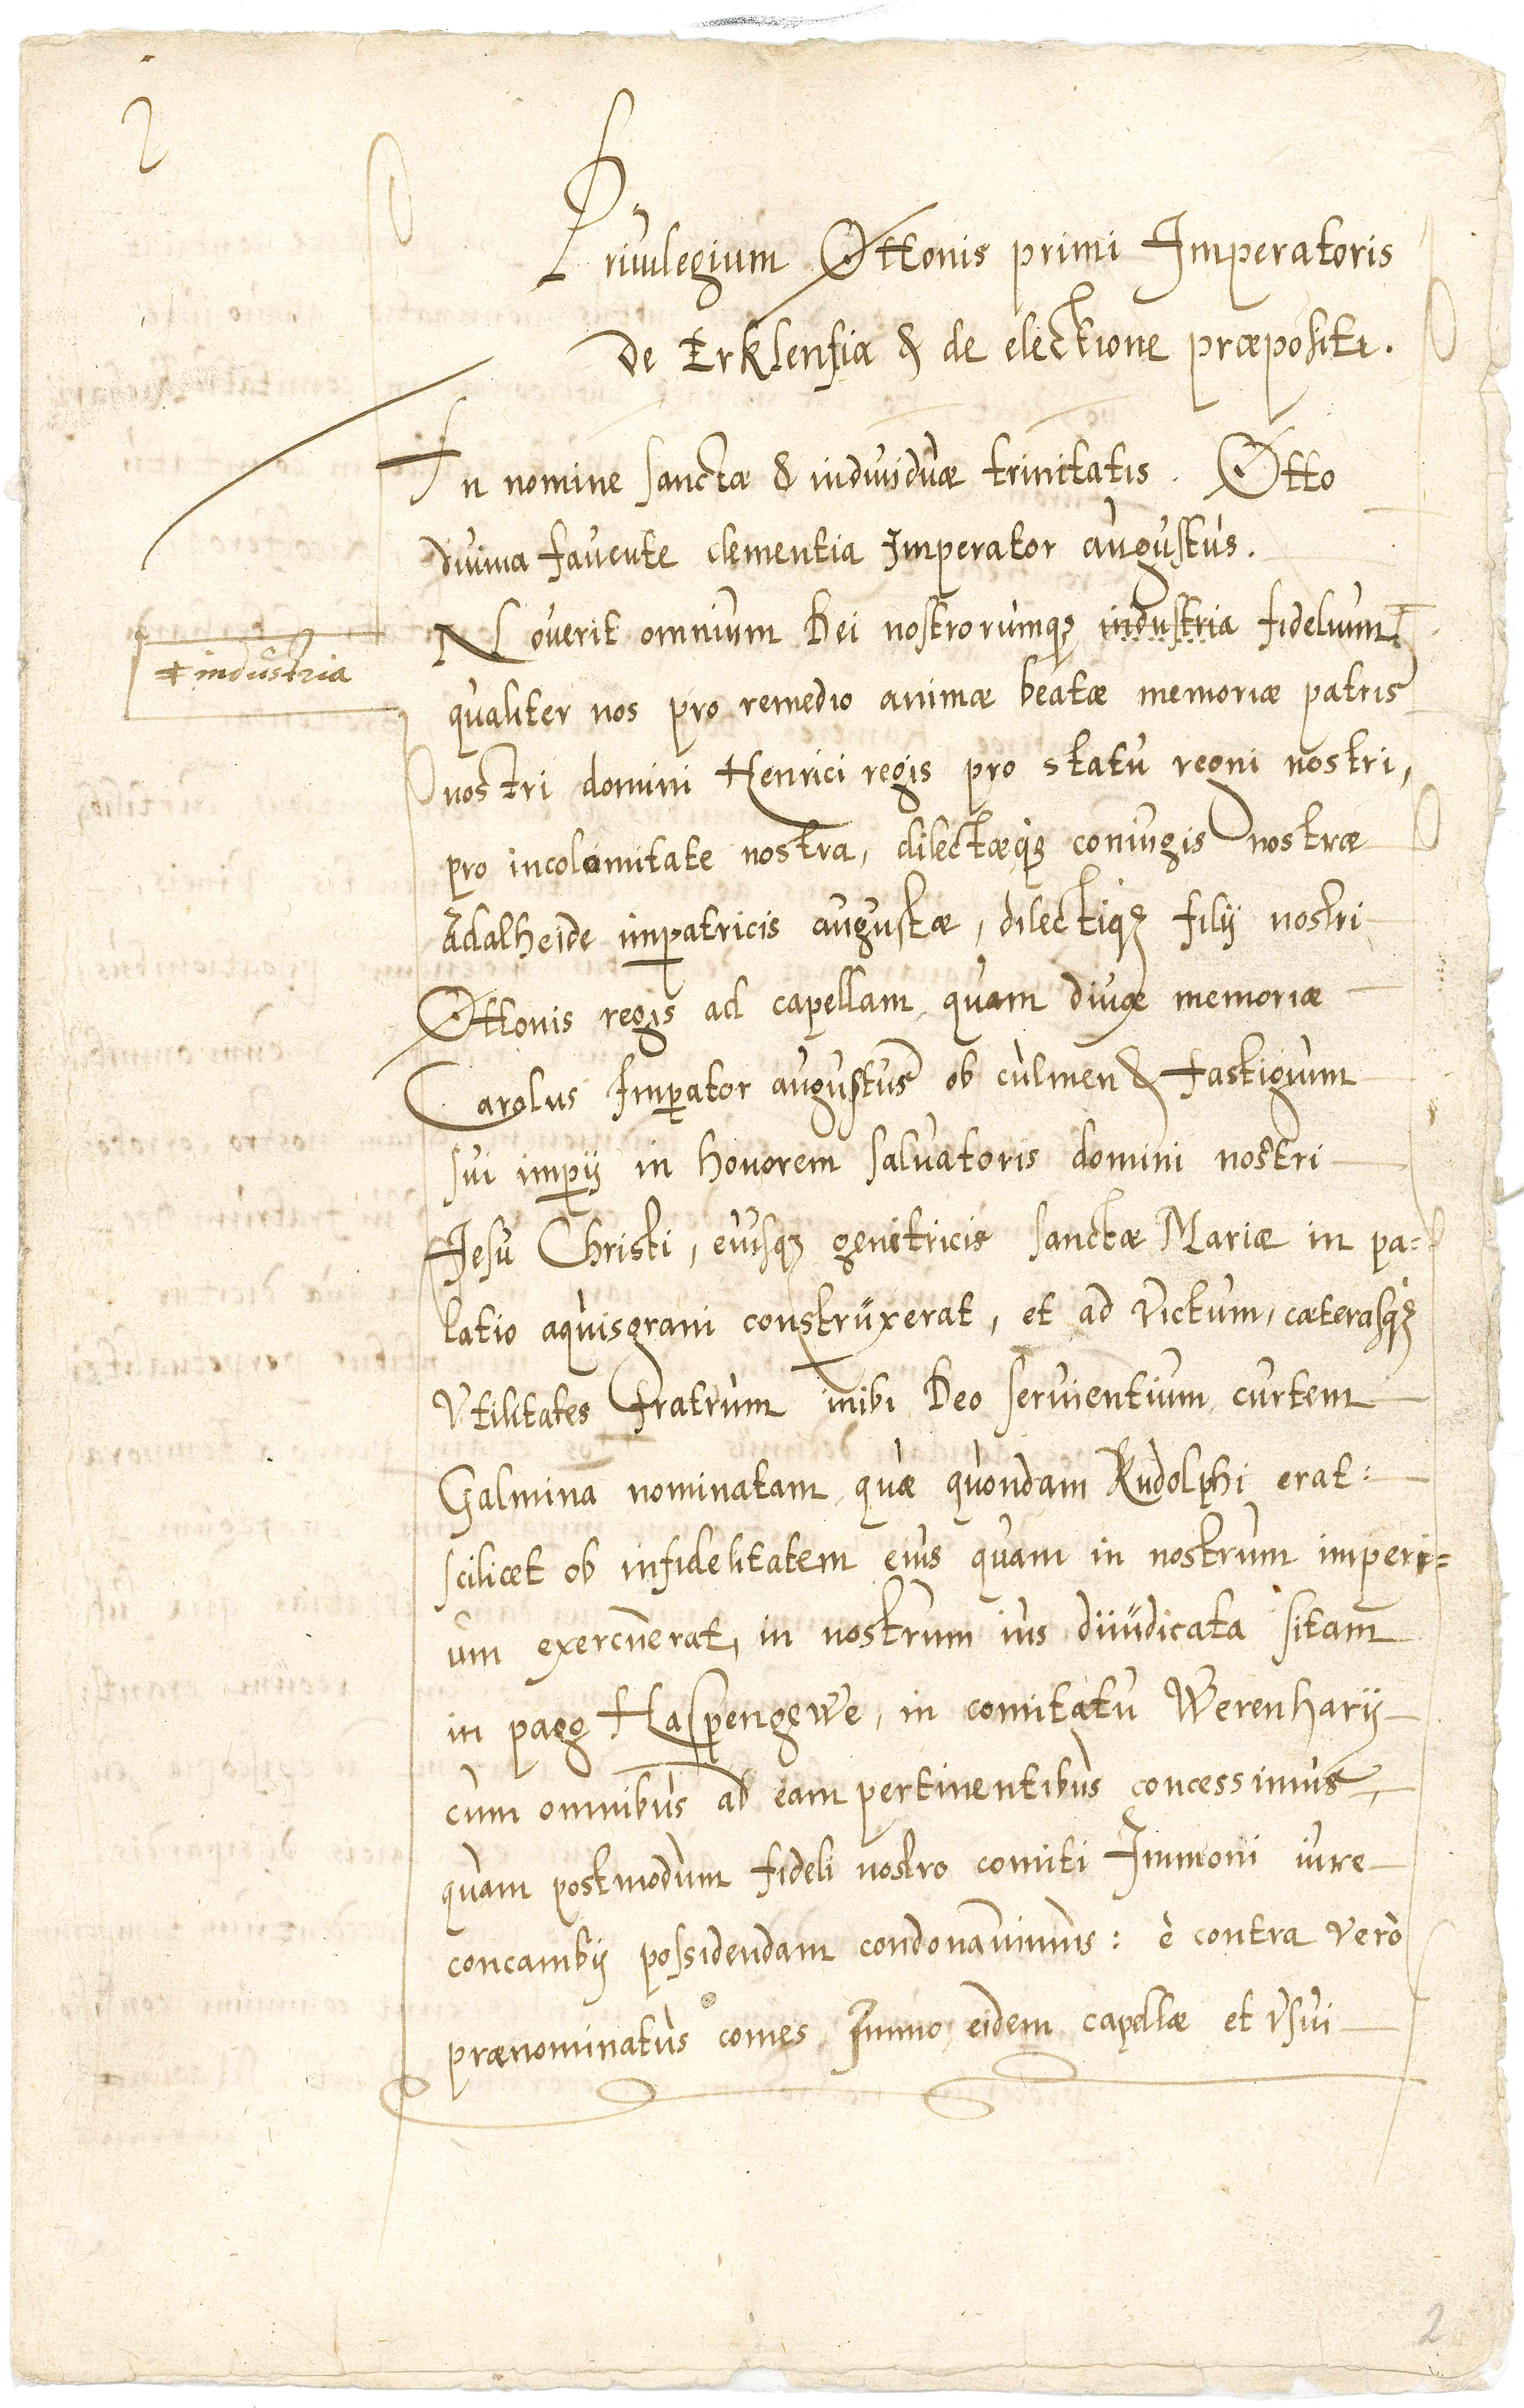 2
Priuilegium Ottonis primi Imperatoris
de Erklensia & de electione præpositi.
In nomine sanctæ & indiuiduæ trinitatis. Otto
diuina fauente clementia Imperator augustus.
Nouerit omnium Dei nostrorumqꝫ industria fidelium ⧧
⧧ industria
qualiter nos pro remedio animæ beatæ memoriæ patris
nostri domini Henrici regis pro statu regni nostri,
pro incolomitate nostra, dilectæqꝫ coniugis nostræ
Adalheide imꝑatricis augustæ, dilectiqꝫ filij nostri
Ottonis regis ad capellam, quam diuæ memoriæ
Carolus Imꝑator augustus ob culmen & fastigium
sui imꝑij in honorem saluatoris domini nostri
Jesu Christi, eiusqꝫ genitricis sanctæ Mariæ in pa=
latio aquisgrani construxerat, et ad victum, cæterasqꝫ
vtilitates fratrum inibi Deo seruientium, curtem
Galmina nominatam, quæ quondam Rudolphi erat:
scilicet ob infidelitatem eius quam in nostrum imperi=
um exercuerat, in nostrum ius diiudicata sitam
in pago Haspengewe, in comitatu Werenharij
cum omnibus ad eam pertinentibus concessimus,
quam postmodum fideli nostro comiti Immoni iure
concambij possidendam condonauimus: è contra verò
prænominatus comes Immo eidem capellæ et vsui
2